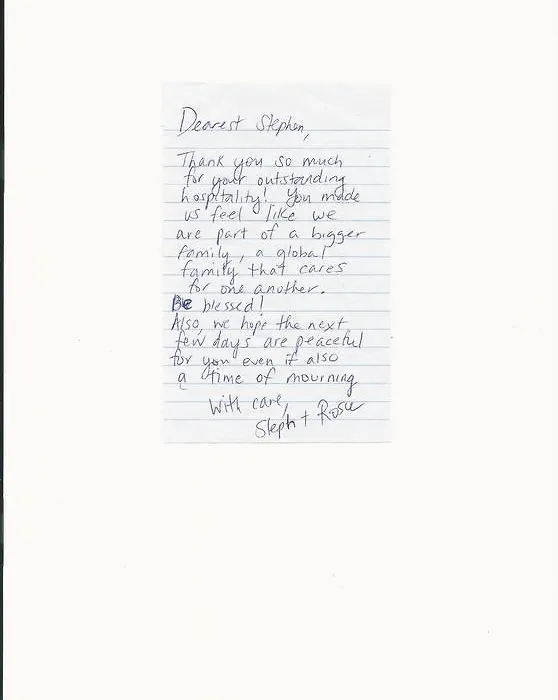 Dearest Stephen,
Thank you so much
for your outstanding
hospitality! You made
us feel like we
are part of a bigger
family, a global
family that cares
for one another.
Be blessed!
Also, we hope the next
few days are peaceful
for you even if also
a time of mourning
With care,
Steph + Rosie